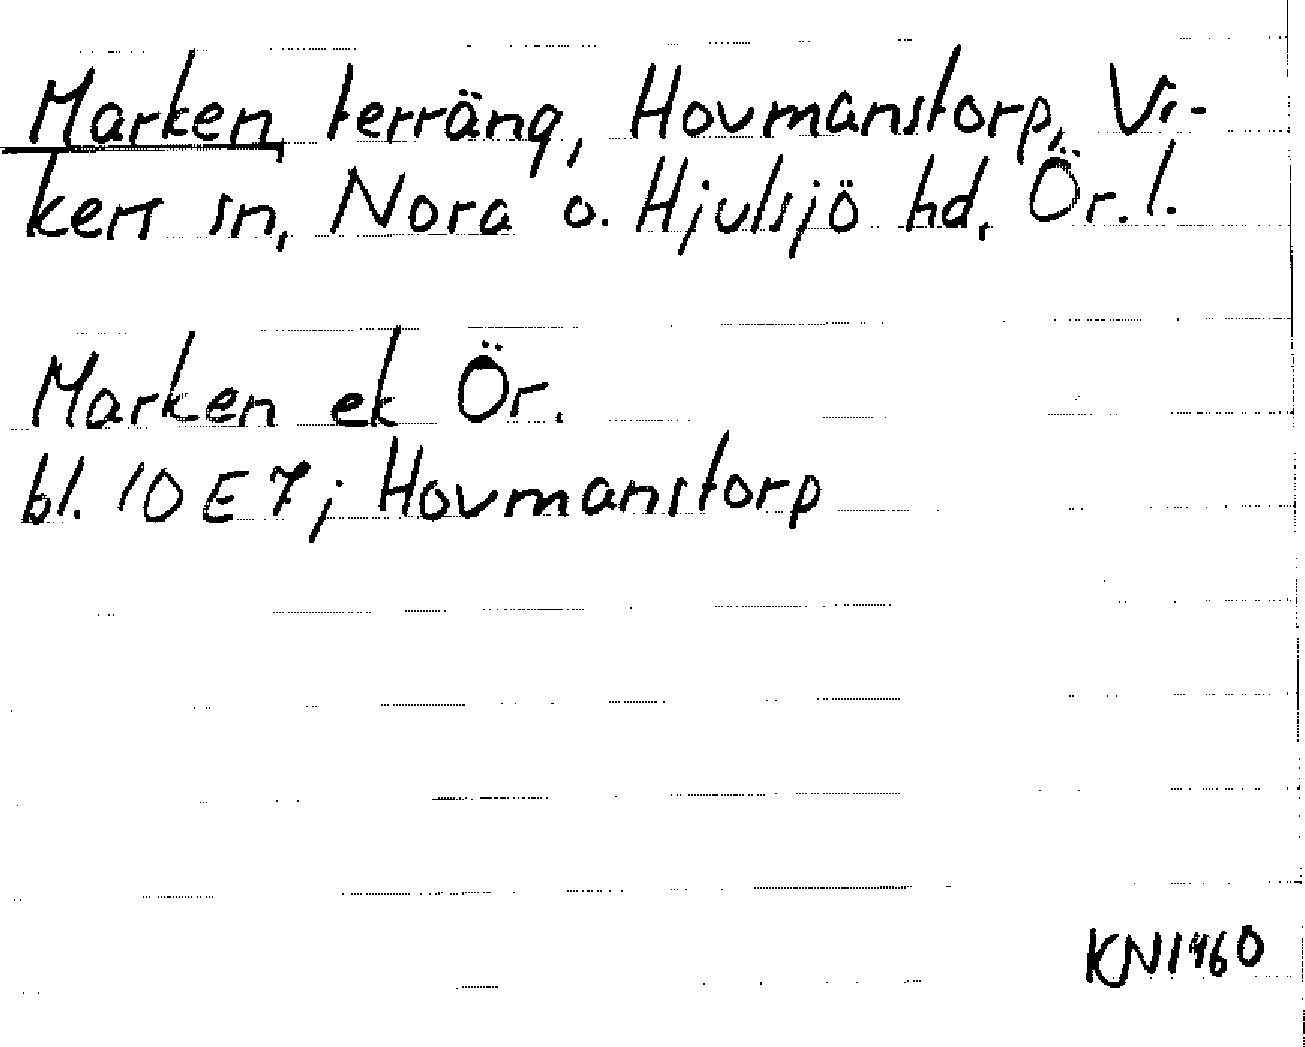 Marken, terräng, Hovmanstorp, Vi-
kers sn, Nora o. Hjulsjö hd, Ör. l.
Marken ek Ör.
bl. 10 E 7; Hovmanstorp
KN 1960